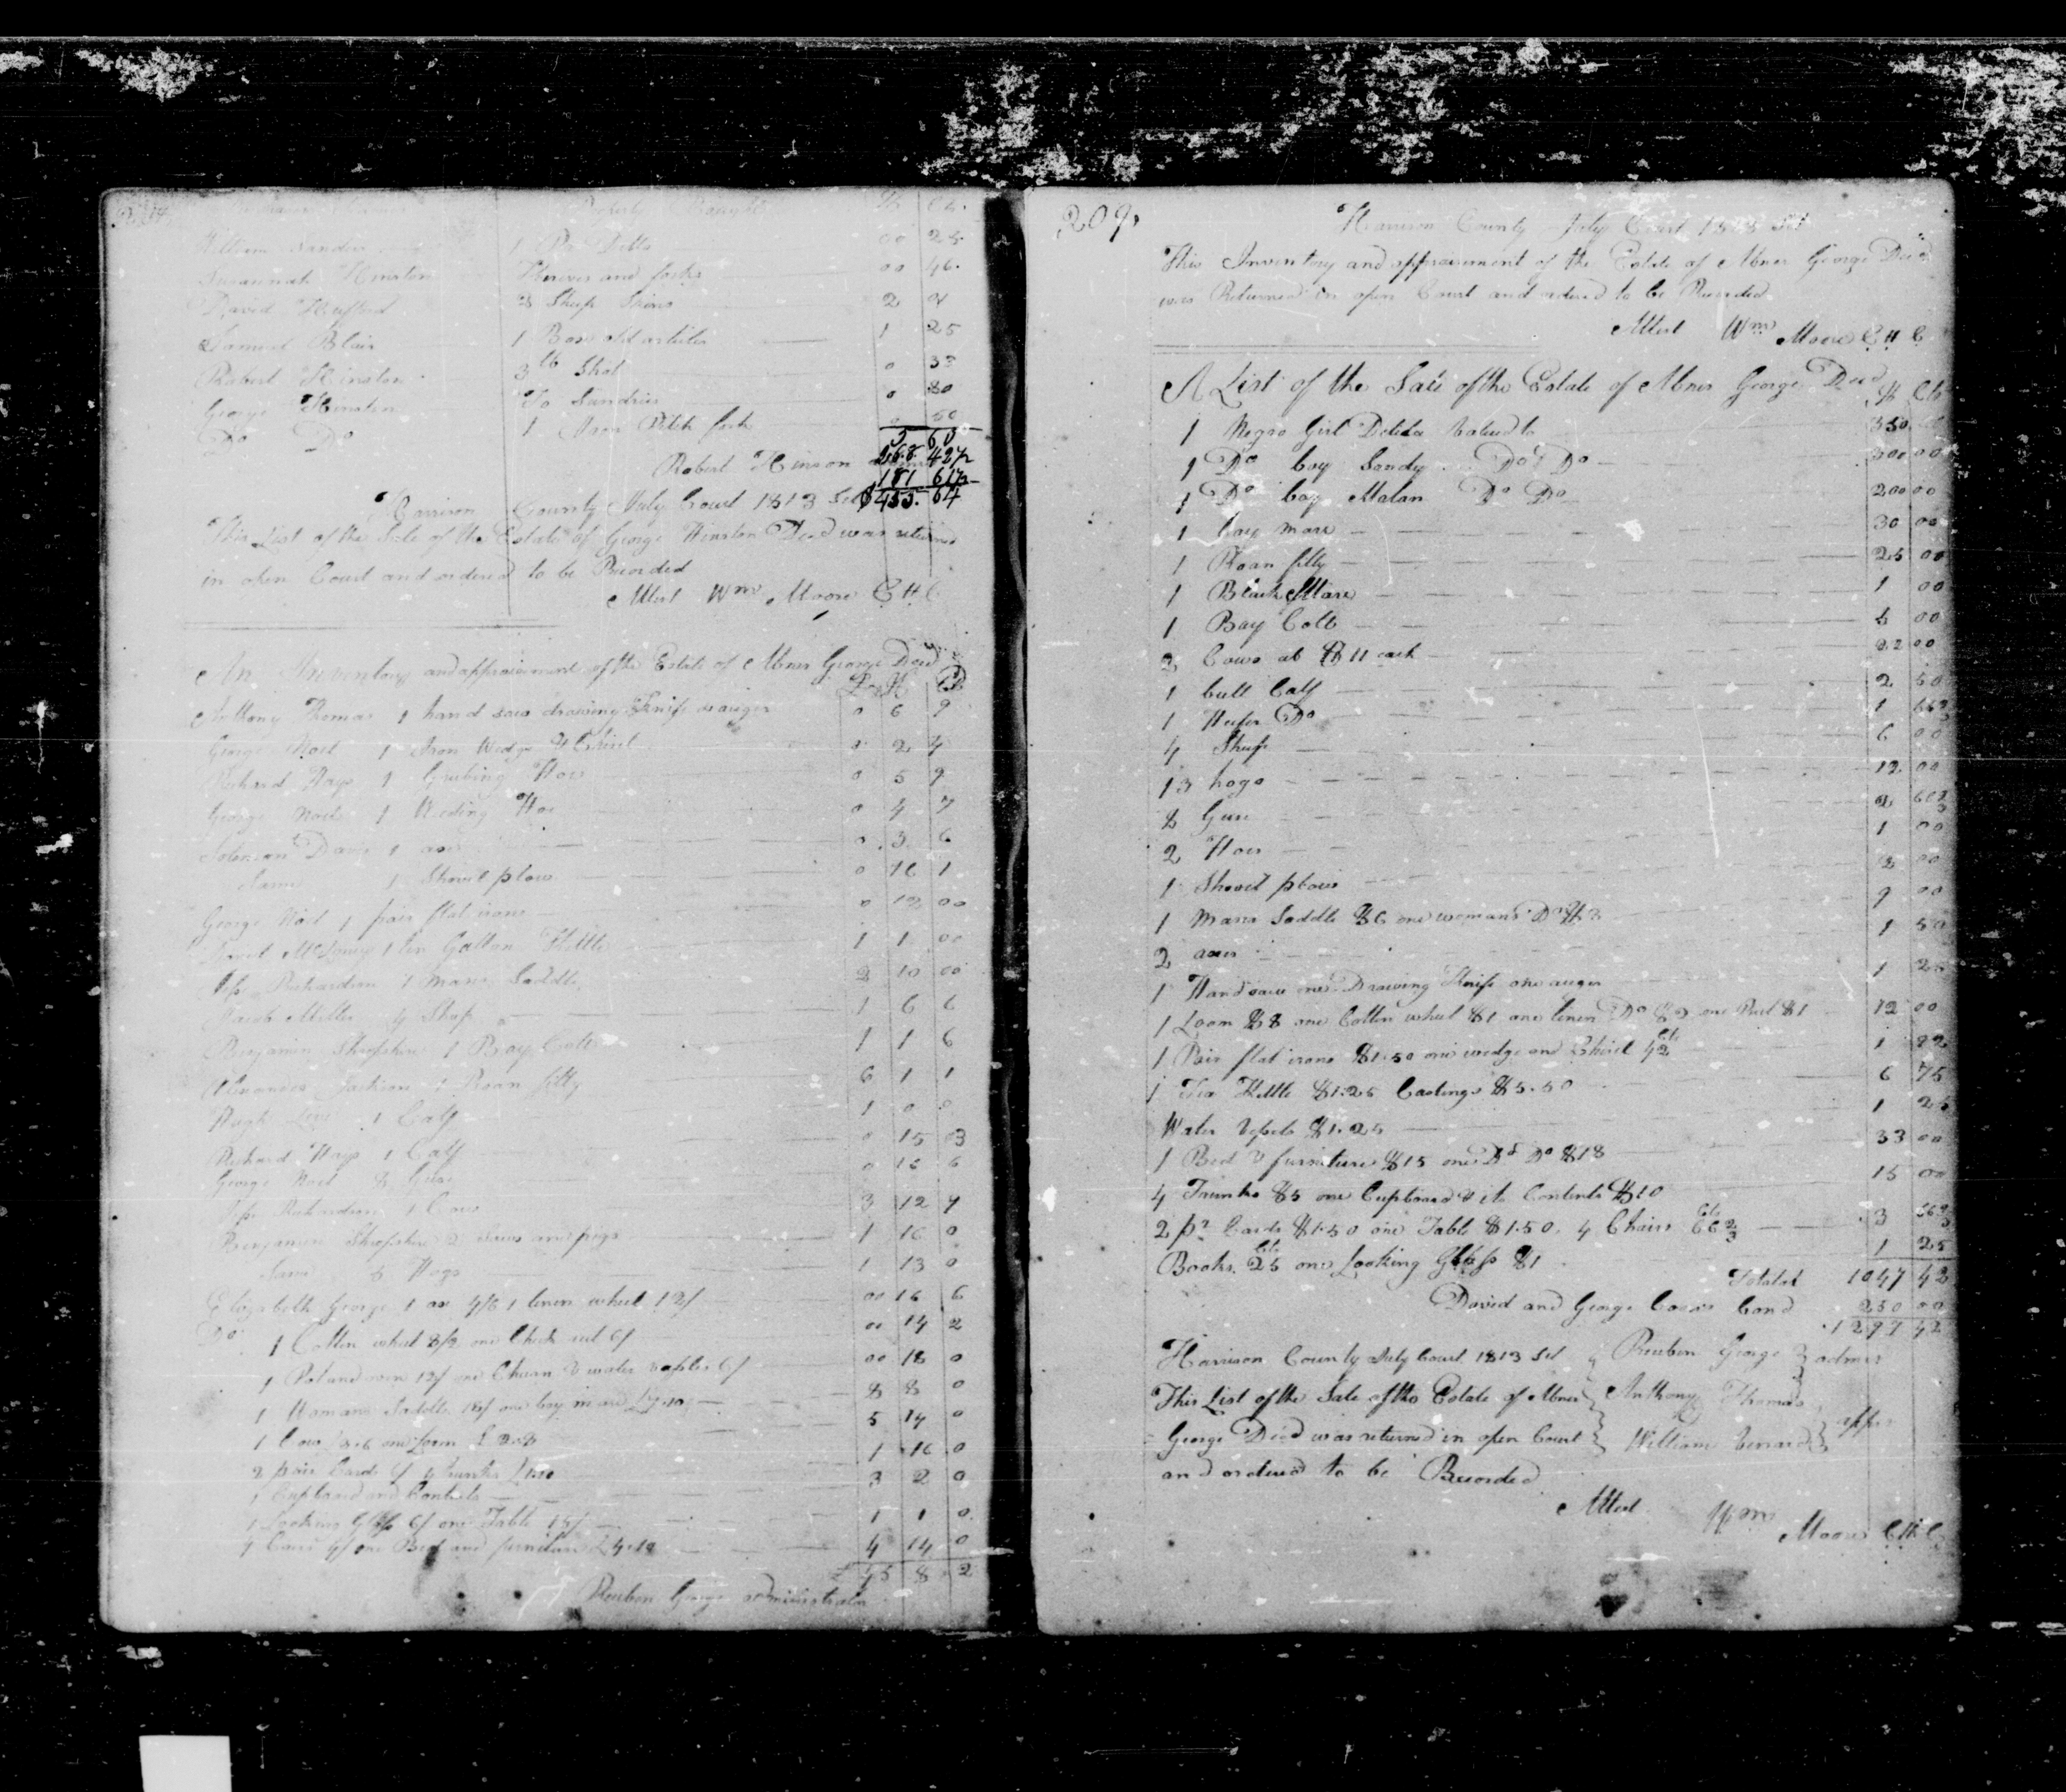 Property Bought $ Cts.
William Sanders 1 Pr Ditto 00 25
Susannah Hinston Knives and forks 00 46.
David Hufford 3 Sheep Skins 2 4
Samuel Blair 1 Box old articles 1 25
Robert Hinston 3 lb Shot 0 33
George Hinston To Sundries 0 80
Do Do 1 Iron Pitch fork 50
5 63
Robert Hinson 268. 42½
181 61½
Harrison County July Court 1813 Sct $455. 64
This List of the Sale of the Estate of George Hinston Decd was returned
in open Court and ordered to be Recorded
Attest Wm Moore C H C
An Inventory and appraisement of the Estate of Abner George Decd
Anthony Thomas 1 hand saw drawing Knife & auger 0 6 9
George Noel 1 Iron Wedge & Chisel 0 2 4
Richard Hays 1 Grubing Hoe 0 5 9
George Noel 1 Weeding Hoe 0 4 7
Solomon Davis 1 axe 0 3 6
Same 1 Shovel plow 0 16 1
George Noel 1 pair flat irons 0 12 00
1 ten Gallon Kettle 1 1 00
Richardson 1 mans Saddle 2 10 00
Jacob Miller 4 Sheep 1 6 6
Benjamin Shropshire 1 Bay Colt 1 1 6
Alexander Jackson 1 Roan filly 6 1 1
Hugh 1 Calf 1 0 0
Richard Hays 1 Calf 0 15 03
George Noel 8 Geese 0 16 6
Richardson 1 Cow 3 12 7
Benjamin Shropshire 2 Sows and pigs 1 16 0
Same 5 Hogs 1 13 0
Elizabeth George 1 ax 4/6 1 linen wheel 12/ 00 16 6
Do 1 Cotten wheel 8/2 one Check reel 6/ 00 14 2
1 Pot and oven 12/ one Churn & water vessles 6/ 00 18 0
1 Womans Saddle 18/ one bay mare £7.10 8 8 0
1 Cow one Loom 5 14 0
2 pair Cards 6/ 4 trunks £1.10 1 16 0
1 Cupboard and Contents 3 2 0
1 Looking Glass 6/ one Table 15/ 1 1 0
4 Cairs 4/ one Bed and furniture £4.10 4 14 0
8 2
Reuben George administrator
209.
Harrison County July Court 1813 Sct
This Inventory and appraisement of the Estate of Abner George Decd
was Returned in open Court and ordered to be Recorded
Attest Wm Moore C H C
A List of the Sale of the Estate of Abner George Decd $ Cts
1 Negro Girl Delila Valued to 350
1 Do boy Sandy Do Do 300 00
1 Do boy Matan Do Do 200 00
1 bay mare 30 00
1 Roan filly 25 00
1 Black Mare 1 00
1 Bay Colt 5 00
2 Cows at $11 each 22 00
1 bull Calf 2 50
1 Heifer Do 1 66⅔
4 Sheep 6 00
13 hogs 12 00
8 Geese 2 66⅔
2 Hoes 1 00
1 Shovel plow 2 00
1 Mans Saddle $6 one womans Do $3 9 00
2 axes 1 50
1 Handsaw one Drawing Knife one auger 1 25
1 Loom $8 one Cotten wheel $1 one linen Do $2 one Reel $1 12 00
1 Pair flat irons $1.50 one wedge and Chisel 42 Cts 1 92
1 Tea Kettle $1.25 Castings $5.50 6 75
Water Vessels $1.25 1 25
1 Bed & furniture $15 one Do Do $18 33 00
4 Trunks $5 one Cupboard & its Contents $10 15 00
2 pr Cards $1.50 one Table $1.50. 4 Chairs 66⅔ Cts 3 66⅔
Books 25 Cts one Looking Glass $1 1 25
Total 1047 42
David and George bond 250 00
1297 42
Harrison County July Court 1813 Sct Reuben George admr
This List of the Sale of the Estate of Abner Anthony Thomas
George Decd was returned in open Court William apprs
and ordered to be Recorded
Attest Wm Moore C H C